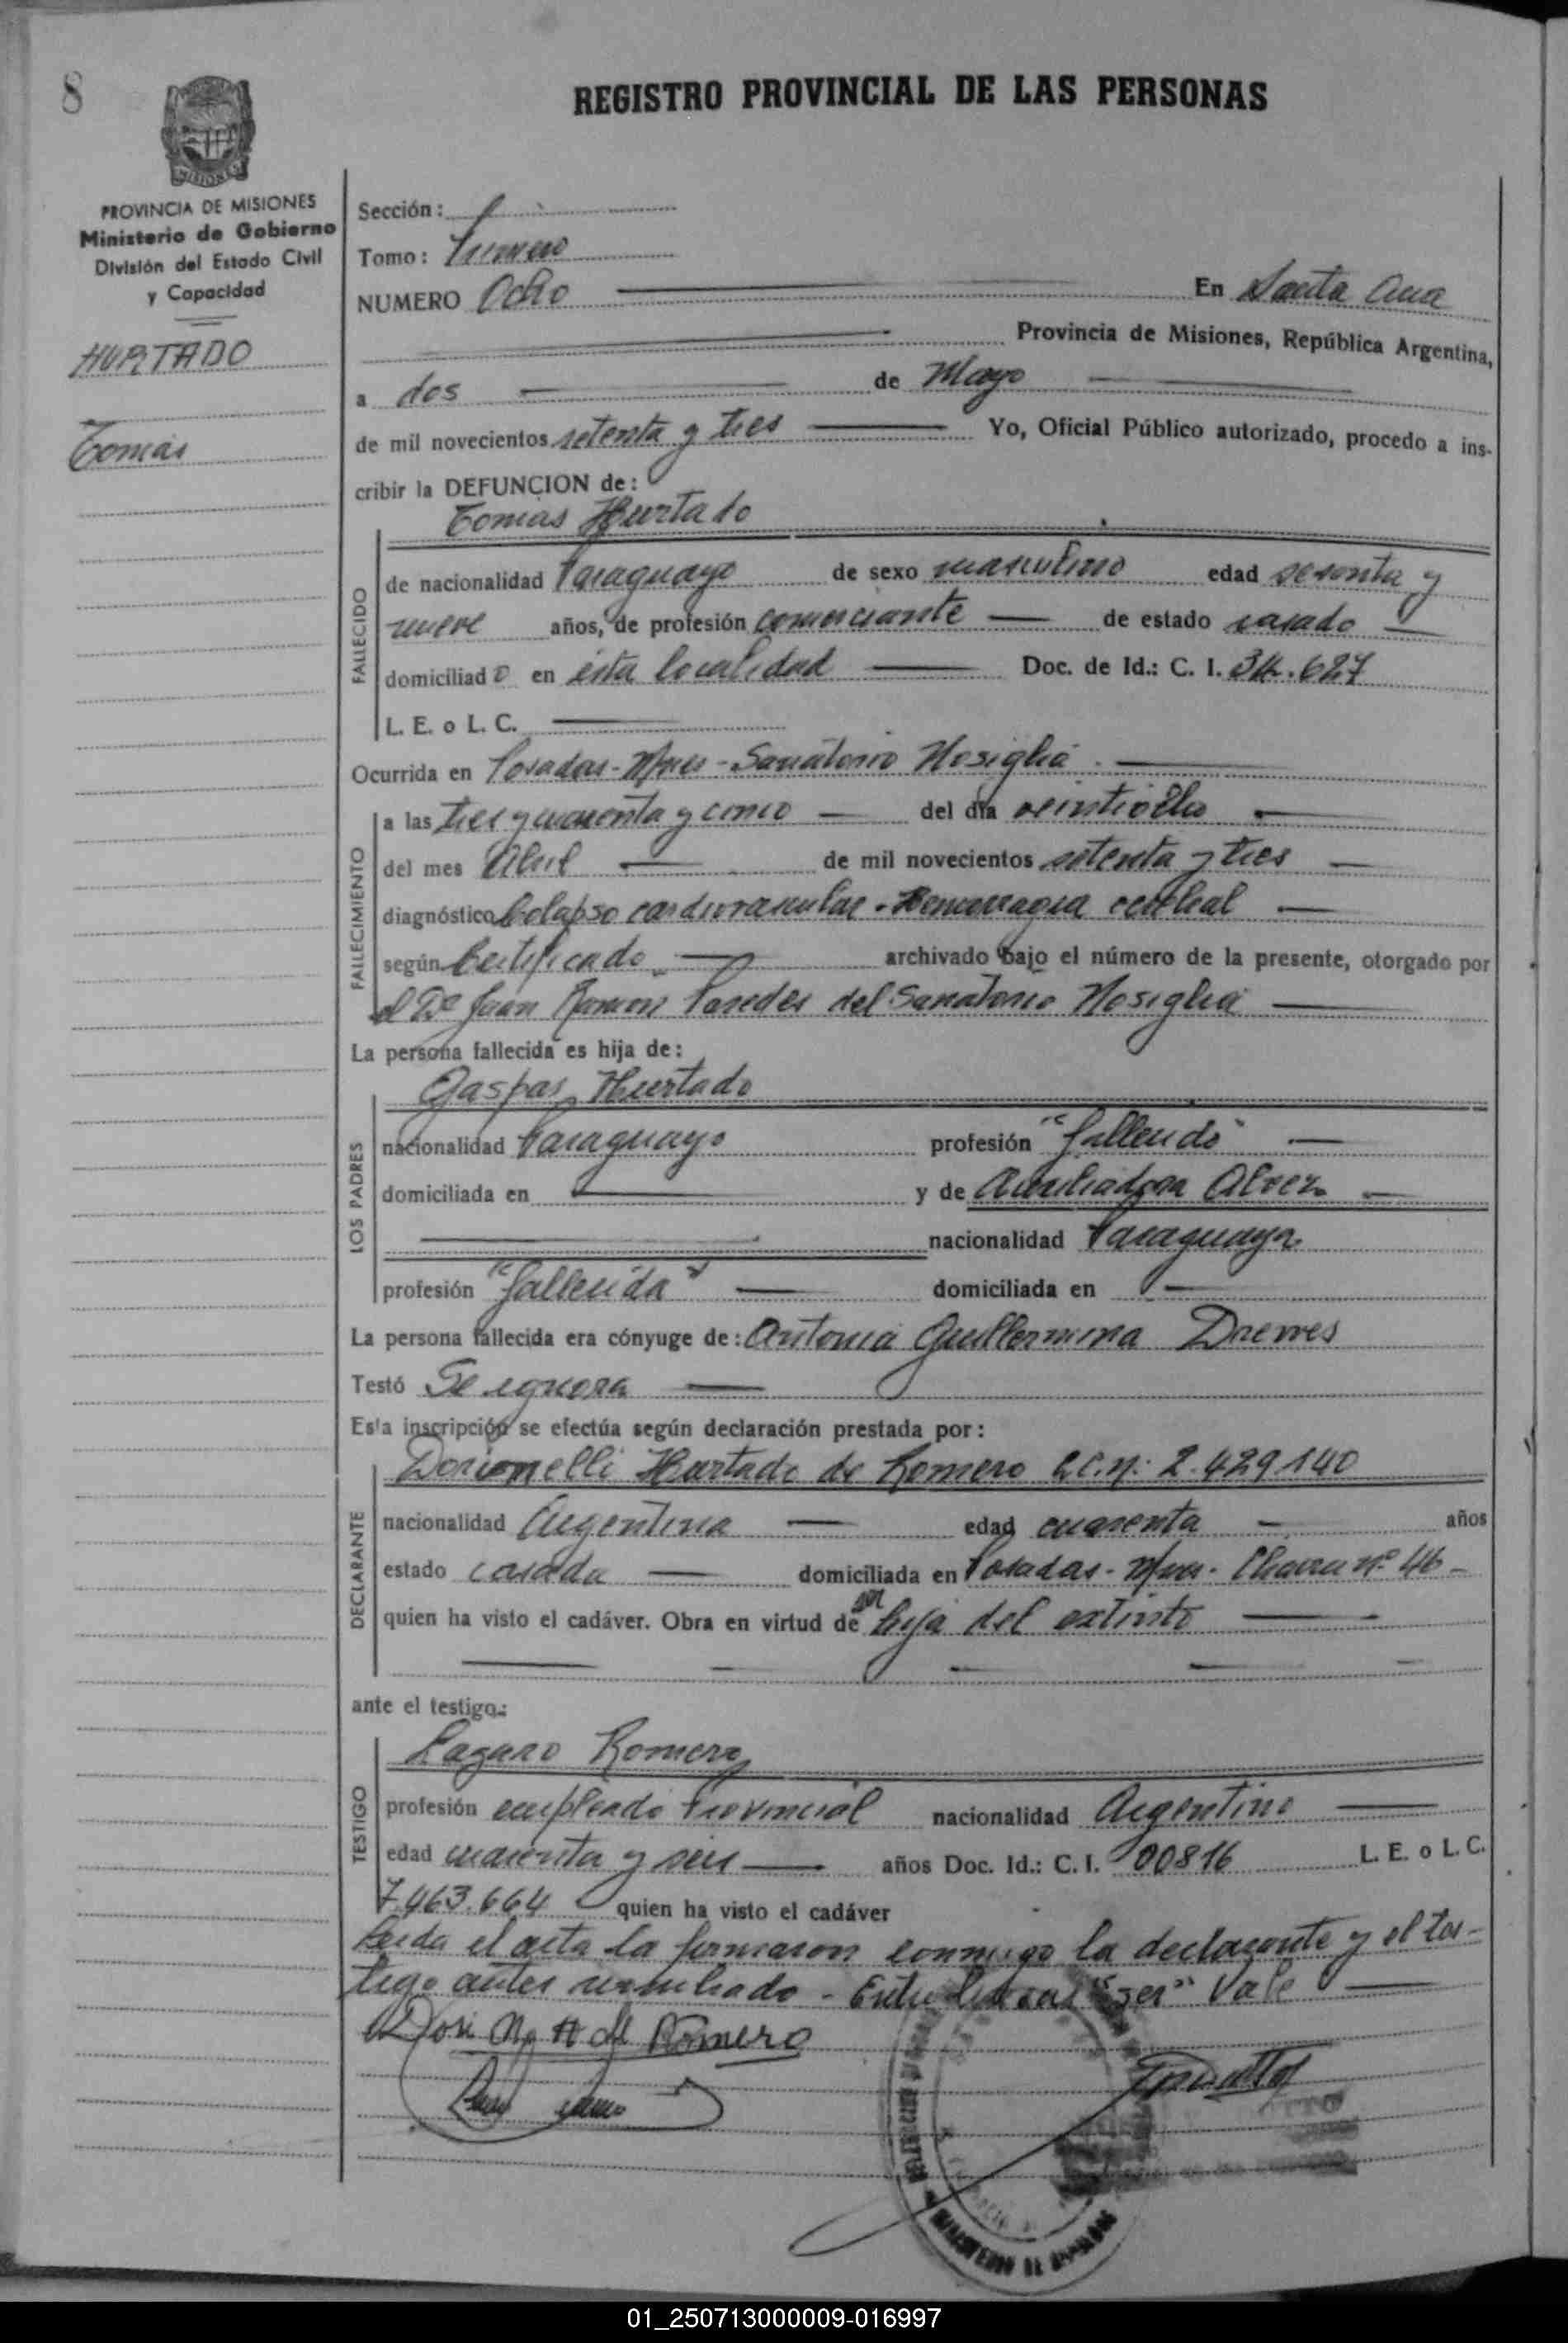 8
REGISTRO PROVINCIAL DE LAS PERSONAS
MISIONES
PROVINCIA DE MISIONES
Ministerio de Gobierno
División del Estado Civil
y Capacidad
HURTADO
Tomás
Sección:
Tomo: Primero
NUMERO Ocho En Santa Ana
Provincia de Misiones, República Argentina,
a dos de Mayo
de mil novecientos setenta y tres Yo, Oficial Público autorizado, procedo a ins-
cribir la DEFUNCION de:
Tomás Hurtado
FALLECIDO
de nacionalidad Paraguaya de sexo masculino edad sesenta y
nueve años, de profesión comerciante de estado casado
domiciliado en ésta localidad Doc. de Id.: C. I. 34.627
L. E. o L. C.
Ocurrida en Posadas - Mnes - Sanatorio Nosiglia
FALLECIMIENTO
a las tres y cuarenta y cinco del día veintiocho
del mes Abril de mil novecientos setenta y tres
diagnóstico Colapso cardiovascular - Hemorragia cerebral
según Certificado archivado bajo el número de la presente, otorgado por
el Dr Juan Ramón Paredes del Sanatorio Nosiglia
La persona fallecida es hija de:
Gaspar Hurtado
LOS PADRES
nacionalidad Paraguayo profesión "fallecido"
domiciliada en y de Auxiliadora Alvez
nacionalidad Paraguaya
profesión "fallecida" domiciliada en
La persona fallecida era cónyuge de: Antonia Guillermina Drewes
Testó Se ignora
Esta inscripción se efectúa según declaración prestada por:
Hurtado de Romero L.C.Nº 2.429.140
DECLARANTE
nacionalidad Argentina edad cuarenta años
estado casada domiciliada en Posadas - Mnes - Chacra nº 46 -
quien ha visto el cadáver. Obra en virtud de ser hija del extinto
ante el testigo:
Lazaro Romero
TESTIGO
profesión empleado Provincial nacionalidad Argentino
edad cuarenta y seis años Doc. Id.: C. I. 00816 L. E. o L. C.
7.463.664 quien ha visto el cadáver
Leida el acta la firmaron conmigo la declarante y el tes-
tigo antes nombrado - Entre lineas "ser" Vale
H de Romero
01_250713000009-016997